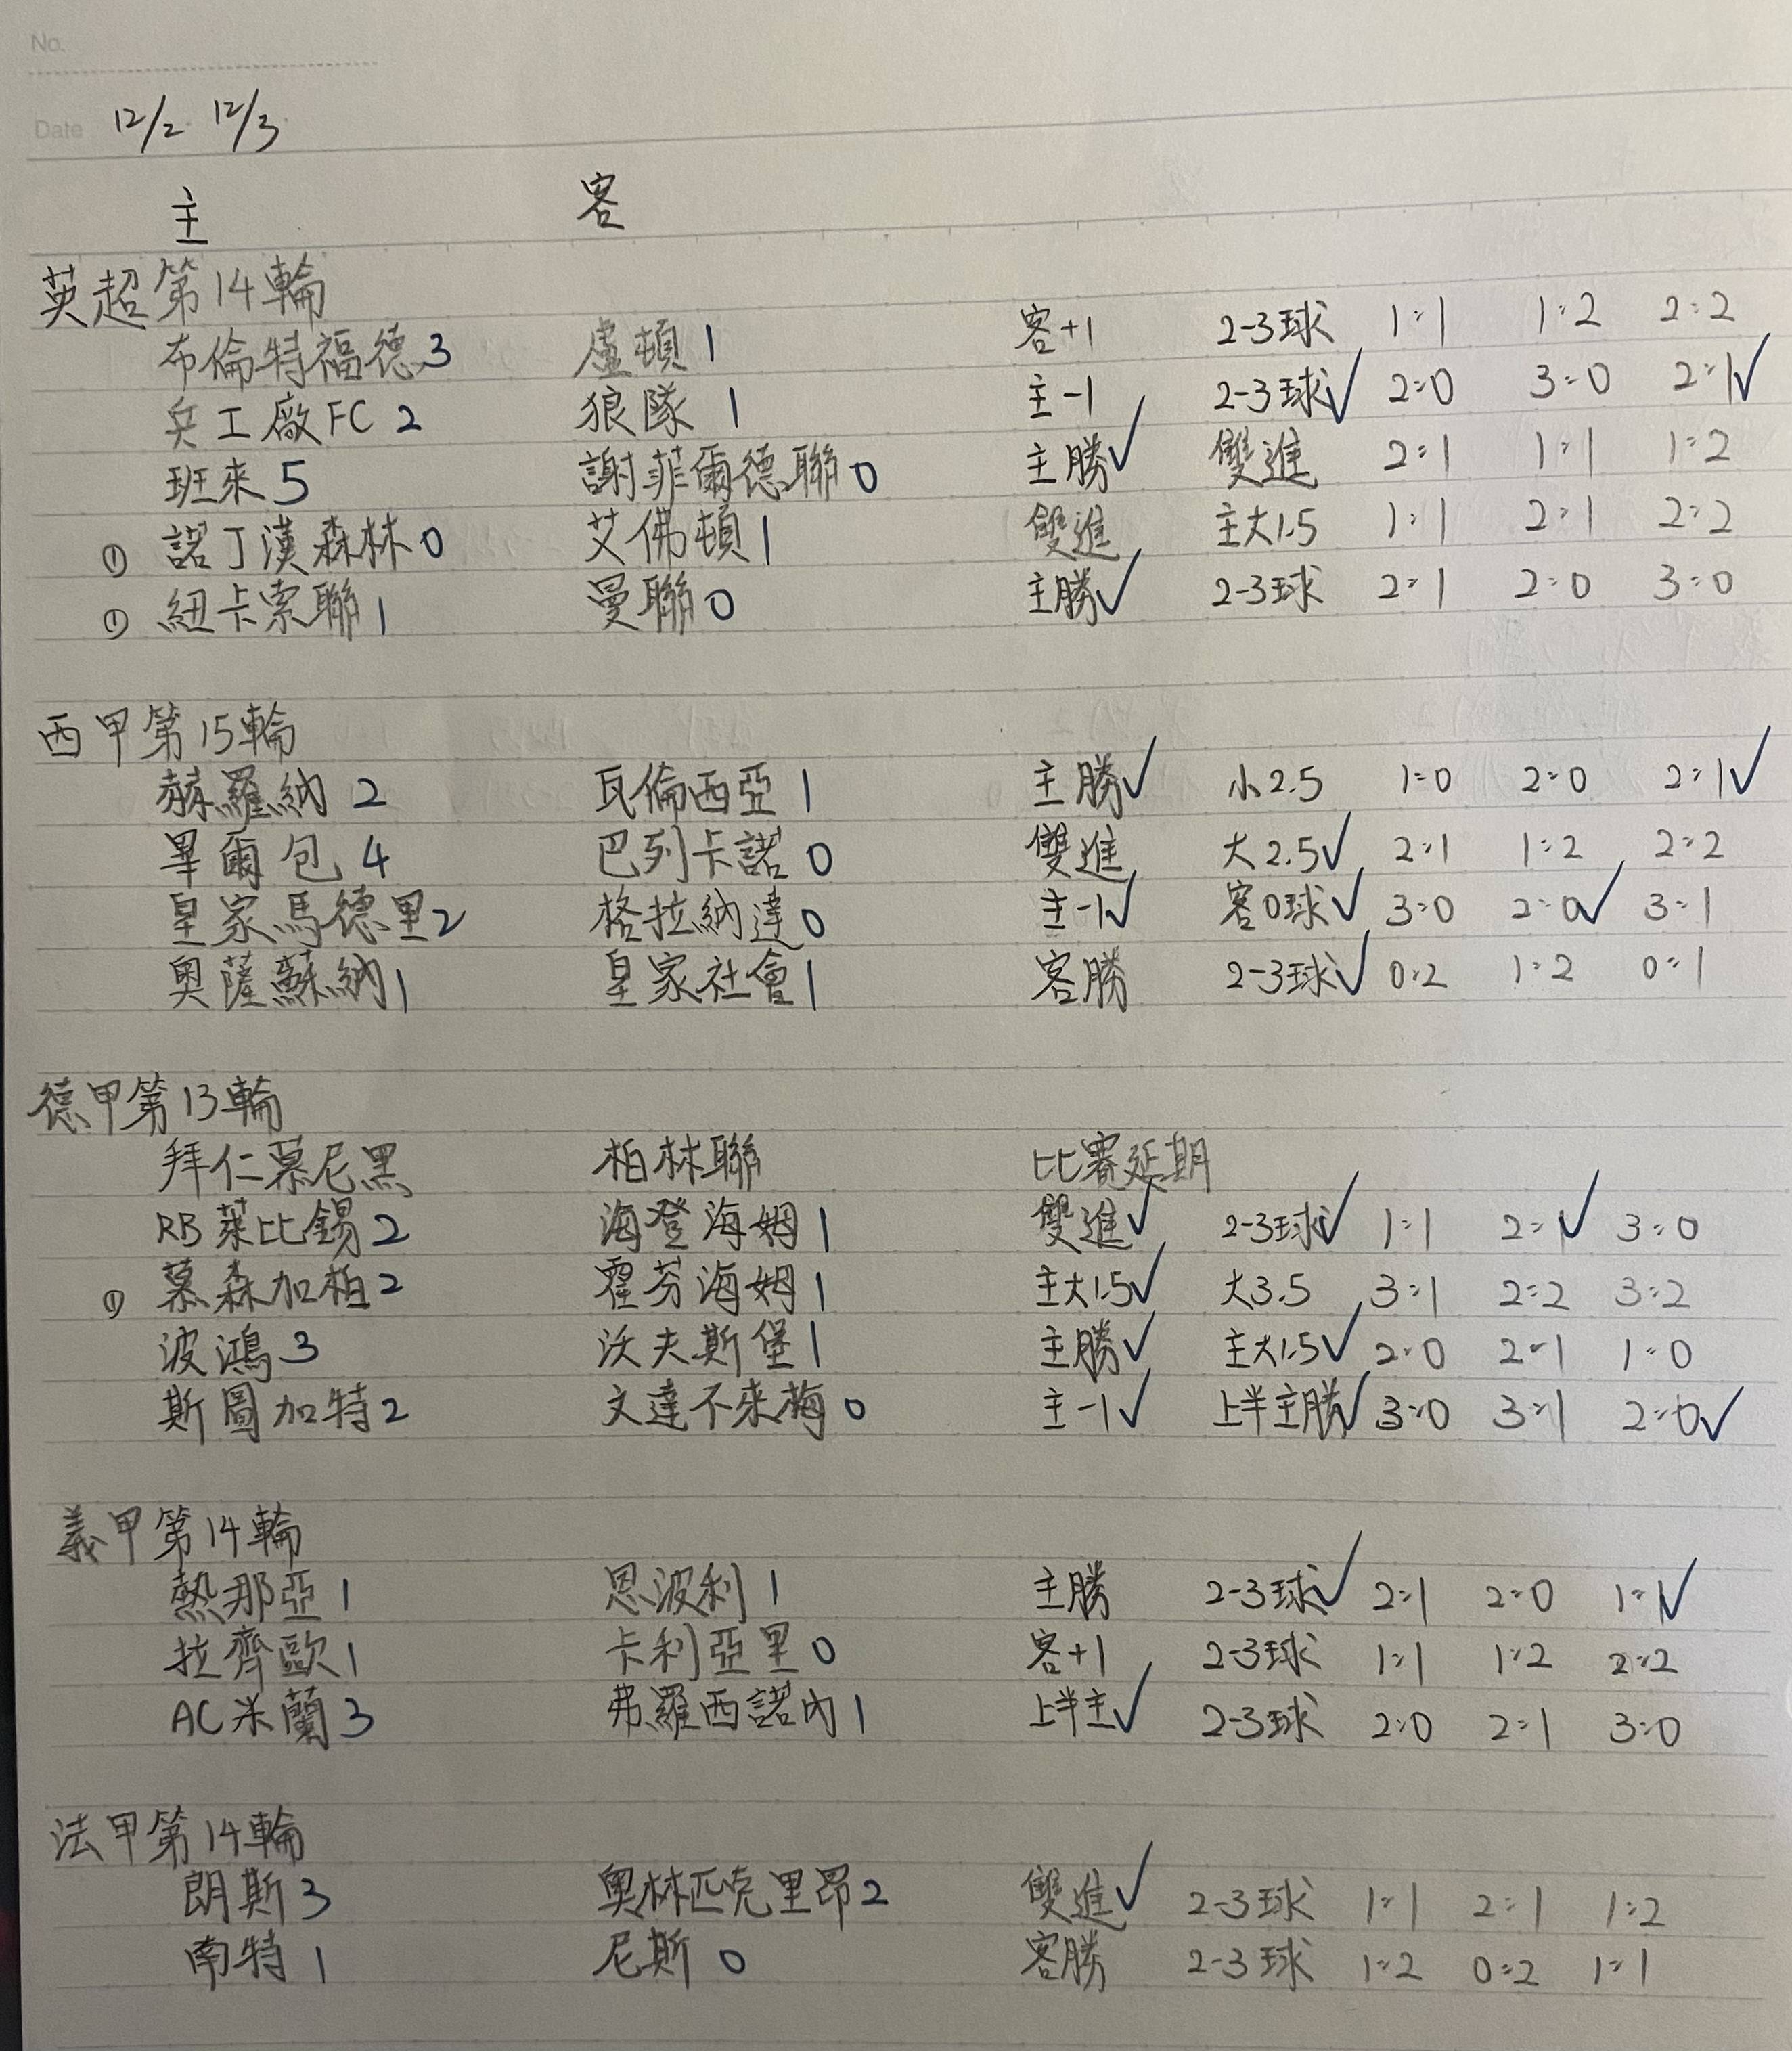 No.
Date 12/2 12/3
主 客
英超第14輪
布倫特福德3 盧頓1 客+1 2-3球 1:1 1:2 2:2
兵工廠FC 2 狼隊 1 主-1 2-3球✓ 2:0 3:0 2:1✓
班來5 謝菲爾德聯0 主勝✓ 雙進 2:1 1:1 1:2
① 諾丁漢森林0 艾佛頓1 雙進 主大1.5 1:1 2:1 2:2
① 紐卡索聯1 曼聯0 主勝✓ 2-3球 2:1 2:0 3:0
西甲第15輪
赫羅納 2 瓦倫西亞 1 主勝✓ 小2.5 1:0 2:0 2:1✓
畢爾包 4 巴列卡諾0 雙進 大2.5✓ 2:1 1:2 2:2
皇家馬德里2 格拉納達0 主-1✓ 客0球✓ 3:0 2:0✓ 3:1
奧薩蘇納1 皇家社會1 客勝 2-3球✓ 0:2 1:2 0:1
德甲第13輪
拜仁慕尼黑 柏林聯 比賽延期
RB萊比錫2 海登海姆1 雙進✓ 2-3球✓ 1:1 2:1✓ 3:0
① 慕森加柏2 霍芬海姆1 主大1.5✓ 大3.5 3:1 2:2 3:2
波鴻3 沃夫斯堡1 主勝✓ 主大1.5✓ 2:0 2:1 1:0
斯圖加特2 文達不來梅0 主-1✓ 上半主勝✓ 3:0 3:1 2:0✓
義甲第14輪
熱那亞1 恩波利1 主勝 2-3球✓ 2:1 2:0 1:1✓
拉齊歐1 卡利亞里0 客+1 2-3球 1:1 1:2 2:2
AC米蘭3 弗羅西諾內1 上半主✓ 2-3球 2:0 2:1 3:0
法甲第14輪
朗斯3 奧林匹克里昂2 雙進✓ 2-3球 1:1 2:1 1:2
南特1 尼斯0 客勝 2-3球 1:2 0:2 1:1